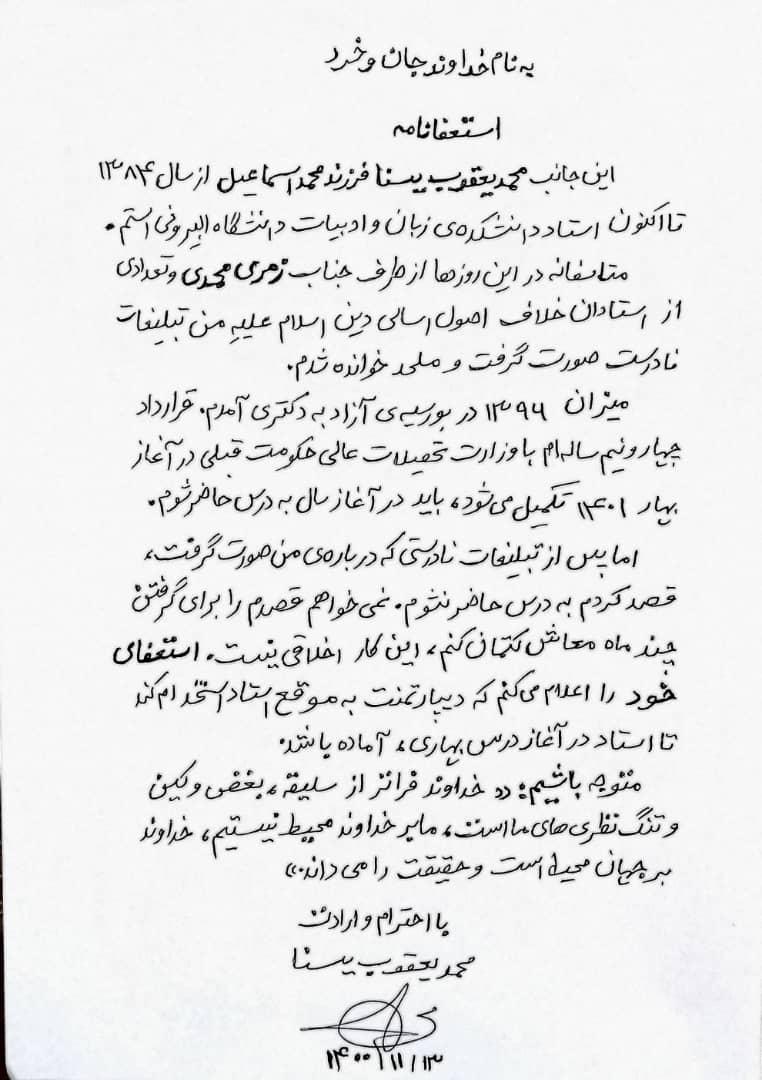 به نام خداوند جان و خرد
استعفانامه
این جانب محمدیعقوب یسنا فرزند محمداسماعیل از سال ۱۳۸۴
تا اکنون استاد دانشکده‌ی زبان و ادبیات دانشگاه البیرونی استم.
متاسفانه در این روزها از طرف جناب زمری محمدی و تعدادی
از استادان خلاف اصول اساسی دین اسلام علیه من تبلیغات
نادرست صورت گرفت و ملحد خوانده شدم.
میزان ۱۳۹۶ در بورسیه‌ی آزاد به دکتری آمدم. قرارداد
چهارونیم ساله‌ام با وزارت تحصیلات عالی حکومت قبلی در آغاز
بهار ۱۴۰۱ تکمیل می‌شود، باید در آغاز سال به درس حاضر شوم.
اما پس از تبلیغات نادرستی که درباره‌ی من صورت گرفت،
قصد کردم به درس حاضر نشوم. نمی‌خواهم قصدم را برای گرفتن
چند ماه معاش کتمان کنم، این کار اخلاقی نیست. استعفای
خود را اعلام می‌کنم که دیپارتمنت به موقع استاد استخدام کند
تا استاد در آغاز درس بهاری، آماده باشد.
متوجه باشیم: «خداوند فراتر از سلیقه، بغض و کین
و تنگ نظری‌های ما است، ما بر خداوند محیط نیستیم، خداوند
بر جهان محیط است و حقیقت را می‌داند.»
با احترام و ارادت
محمدیعقوب یسنا
۱۴۰۰/۱۱/۱۳